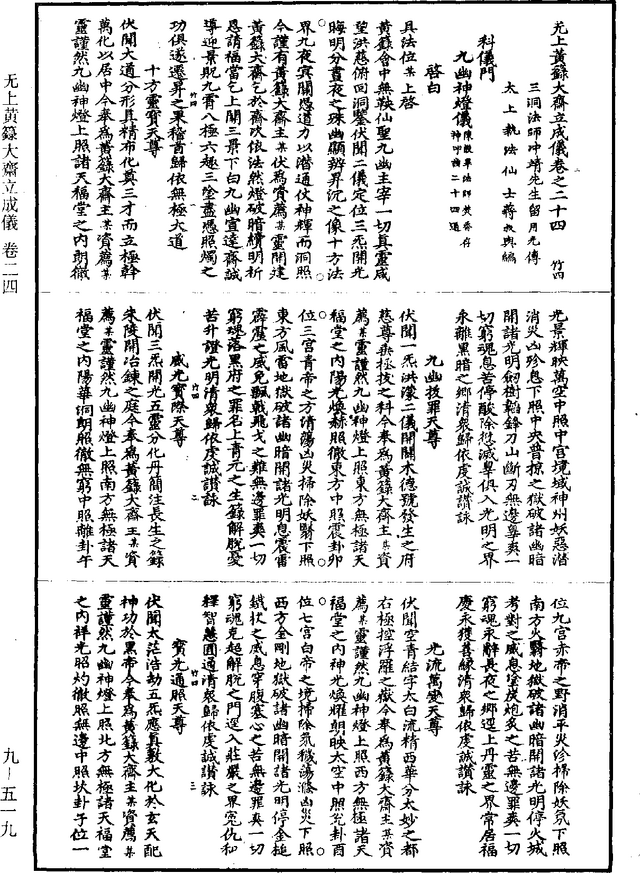 无上黃籙大齋立成儀卷之二十四 竹四
三洞法師沖靖先生留用光傳
太上執法仙士蔣叔輿編
科儀門
九幽神燈儀 陳設畢法師焚香存神叩齒二十四通
啓白
具法位某上啓
黃籙會中無鞅仙聖九幽主宰一切真靈咸
望洪慈俯回洞鑒伏聞二儀定位三炁開光
晦明分晝夜之殊幽顯辨昇沉之像十方法
界九夜冥關思道力以潛通仗神輝而洞照
今謹有黃籙大齋主某伏為資薦某靈開建
黃籙大齋乞於齋次依法然燈破暗續明祈
恩請福當乞上聞三景下白九幽宣達齋誠
導迎景貺九霄八極六趣三塗盡應照燭之
功俱遂遷昇之果稽首歸依無極大道
竹四 一
十方靈寶天尊
伏聞大道分形具精布化奠三才而立極幹
萬化以居中今奉為黃籙大齋主某資薦某
靈謹然九幽神燈上照諸天福堂之內朗徹
光景輝映萬空中照中宮境域神州妖惡潛
消災凶殄息下照中央普掠之獄破諸幽暗
開諸光明劍樹韜鋒刀山斷刃無邊辠爽一
切窮魂息苦停酸除愆滅辠俱入光明之界
永離黑暗之鄉清衆歸依虔誠讚詠
九幽拔罪天尊
伏聞一炁洪濛二儀開闢木德號發生之府
慈尊垂拯拔之科今奉為黃籙大齋主某資
薦某靈謹然九幽神燈上照東方無極諸天
福堂之內陽光煥赫照徹東方中照震卦卯
位三宮青帝之方清蕩凶災掃除妖翳下照
東方風雷地獄破諸幽暗開諸光明息震雷
霹靂之威免飄戟飛戈之難無邊罪爽一切
窮魂落黑府之罪名上青元之生籙解脫憂
苦升證光明清衆歸依虔誠讚詠
竹四 二
威光實際天尊
伏聞三炁開光五靈分化丹簡注長生之籙
朱陵開冶鍊之庭今奉為黃籙大齋主某資
薦某靈謹然九幽神燈上照南方無極諸天
福堂之內陽華洞朗照徹無窮中照離卦午
位九宮赤帝之野消平火沴掃除妖氛下照
南方火翳地獄破諸幽暗開諸光明停火城
考對之威息鑊炭炮炙之苦無邊罪爽一切
窮魂永辭長夜之鄉逕上丹靈之界常居福
慶永獲善緣清衆歸依虔誠讚詠
光流萬寧天尊
伏聞空青結字太白流精西華分太妙之都
右極控浮羅之嶽今奉為黃籙大齋主某資
薦某靈謹然九幽神燈上照西方無極諸天
福堂之內神光煥耀朗映太空中照兌卦酉
位七宮白帝之境掃除氛穢蕩滌凶災下照
西方金剛地獄破諸幽暗開諸光明停金槌
鐵杖之威息穿腹塞心之苦無邊罪爽一切
窮魂克起解脫之門逕入莊嚴之界冤仇和
釋智慧圓通清衆歸依虔誠讚詠
竹四 三
寶光通照天尊
伏聞太茫浩劫五炁應真敷大化於玄天配
神功於黑帝今奉為黃籙大齋主某資薦某
靈謹然九幽神燈上照北方無極諸天福堂
之內祥光照灼徹照無邊中照坎卦子位一
无上黃籙大齋立成儀 卷二四
九－五一九